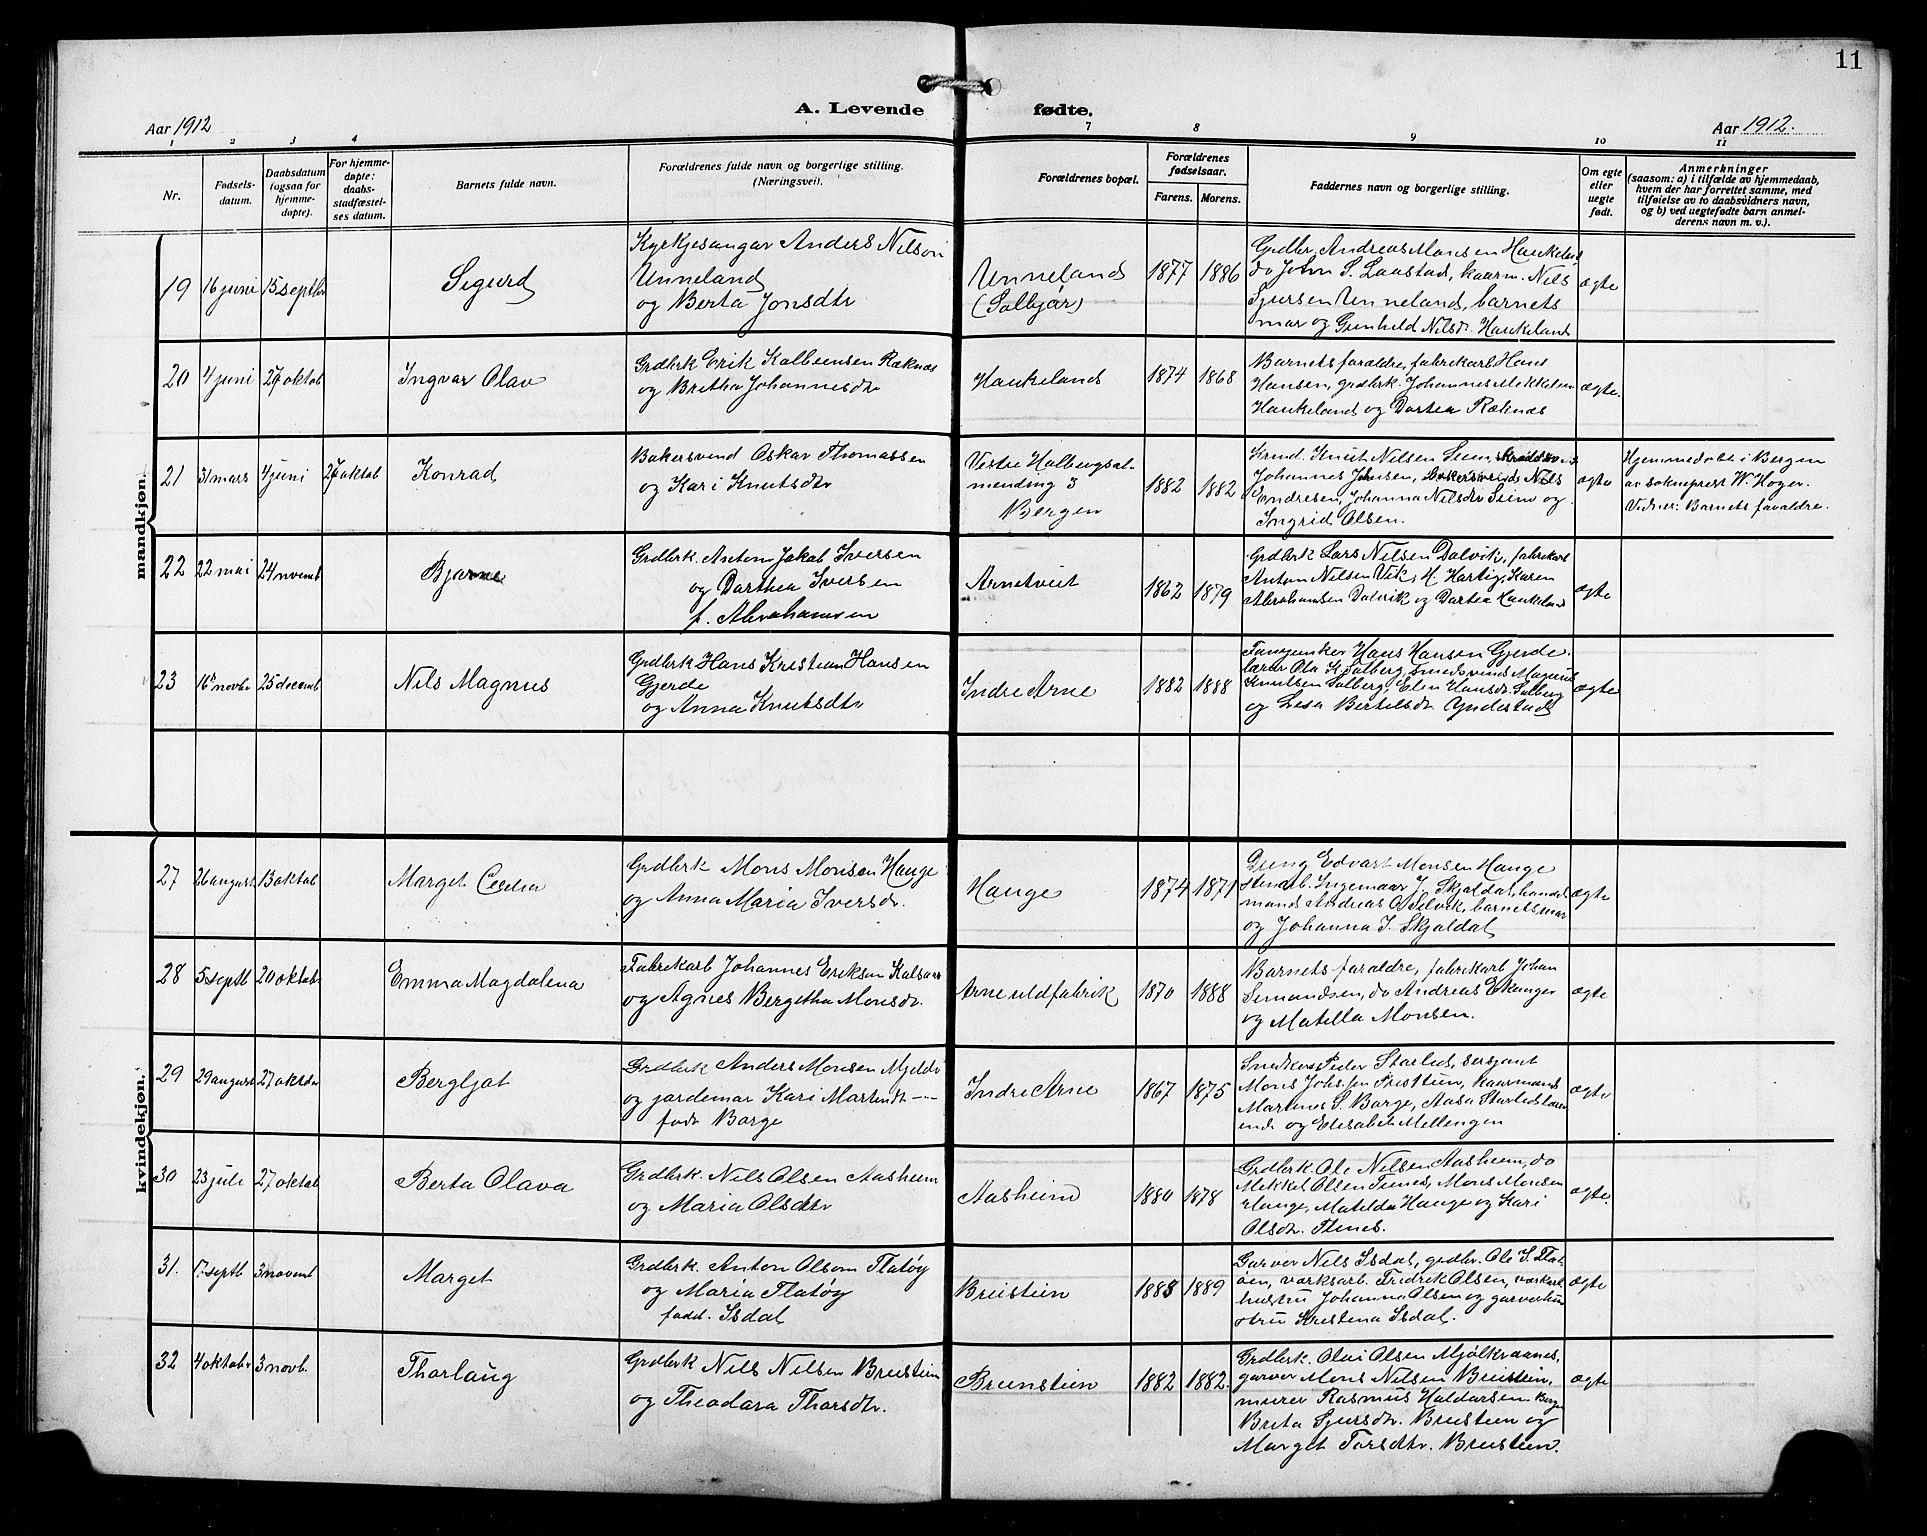 11
A. Levende fødte.
Aar 1912
Aar 1912.
1 2 3 4 7 8 9 10 11
Nr.
Fødsels-
datum.
Daabsdatum
(ogsaa for
hjemme-
døpte).
For hjemme-
døpte:
daabs-
stadfæstel-
ses datum.
Barnets fulde navn.
Forældrenes fulde navn og borgerlige stilling.
(Næringsvei).
Forældrenes bopæl.
Forældrenes
fødselsaar.
Farens. Morens.
Faddernes navn og borgerlige stilling.
Om egte
eller
uegte
født.
Anmerkninger
(saasom: a) i tilfælde av hjemmedaab,
hvem der har forrettet samme, med
tilføielse av to daabsvidners navn,
og b) ved uegtefødte barn anmel-
derens navn m. v.).
mandkjøn.
19 16 juni 15 septbr
Sigurd
Kyrkjesangar Anders Nilson
Unneland
og Berta Jonsdtr
Unneland
(Solbjør)
1877 1886
Grdbr. Andreas Monsen Haukeland
do John S. Laastad, kaarm. Nils
Sjursen Unneland, barnets
mor og Gunhild Nilsdr. Haukeland
ægte
20 4 juni 27 oktob
Ingvar Olav
Grdbrk Erik Kolbeinsen Røknes
og Britha Johannesdtr
Haukeland
1874 1868
Barnets foraldre, fabrikarb Hans
Hansen, grdbrk. Johannes Mikkelsen
Haukeland og Dortea Røknes
ægte.
21 31 mars 4 juni 27 oktob
Konrad
Bakersvend Oskar Thomassen
og Kari Knutsdtr
Vestre Holbergsal-
mending 3
Bergen
1882 1882
Krmd. Knut Nilsen
Johannes Johnsen, bakersvend Nils
Endresen, Johanna Nilsdtr Seim og
Ingrid Olsen.
ægte
Hjemmedøbt i Bergen
av sokneprest W. Hoger.
Vidner: Barnets foraldre.
22 22 mai 24 novemb
Bjarne
Grdbrk. Anton Jakob Iversen
og Dorthea Iversen
f. Abrahamsen
Arnetveit
1862 1879
Grdbrk Lars Nilsen Dalvik, fabrikarb
Anton Nilsen Vik, M. Hartig, Karen
Abrahamsen Dalvik og Dortea Haukeland
ægte
23 16 novbr 25 decemb
Nils Magnus
Grdbrk Hans Kristian Hansen
Gjerde
og Anna Knutsdtr
Indre Arne
1882 1888
Hans Hansen Gjerde.
lærer Ola K. Solberg, smedsvend Magnus
Knutsen Solberg, Elen Hansdr. Solberg
og Lisa Bertelsdr.
ægte
kvindekjøn.
27 26 august 13 oktob
Marget Cecilia
Grdbrk Mons Monsen Hauge
og Anna Maria Iversdr.
Hauge
1874 1871
Ung. Edvart Monsen Hauge
Ingemaar J. Skjoldal, handels
mand Andreas O. Selvik, barnets mor
og Johanna I. Skjoldal
ægte
28 5 septb 20 oktob
Emma Magdalena
Fabrikarb Johannes Eriksen Kalsaas
og Agnes Bergitha Monsdr.
Arne uldfabrik
1870 1888
Barnets foraldre, fabrikarb Johan
Simondsen, do Andreas Eikanger
og Matilla Monsen.
ægte
29 29 august 27 oktbr
Bergljot
Grdbrk Anders Monsen Mjeldo
og jordemor Kari Martindr
født Borge
Indre Arne
1867 1875
Snedker Peder Storlid, sersjant
Mons Johs.sen kaarmand
Martines S. Borge, Aasa Storlid
og Elisabet Mellingen
ægte
30 23 juli 27 oktob
Berta Olava
Grdbrk. Nils Olsen Aasheim
og Maria Olsdtr
Aasheim
1880 1878
Grdbrk. Ole Nilsen Aasheim, do
Mikkel Olsen Tunes, Mons Monsen
Hauge, Matilda Hauge og Kari
Olsdtr.
ægte.
31. 17. septb 3 novemb
Marget
Grdbrk. Anton Olson Flatøy
og Maria Flatøy
fødd. Isdal
Breistein
1883 1889
Garver Nils Isdal, grdbr. Ole S. Flat
øen, værksarb. Fredrik Olsen, værkarb
hustru Johanna Olsen og garverhu
stru Kristina Isdal.
ægte
32 4 oktobr 3 novb.
Thorlaug
Grdbrk Nils Nilsen Breistein
og Theodora Thorsdtr.
Breinstein
1882 1882.
Grdbrk. Olai Olsen Mjølkeraanes,
garver Mons Nilsen Breistein,
murer Rasmus Haldorsen Bergen
Brita Sjursdtr. Breistein og
Marget Torsdtr. Breistein.
ægte